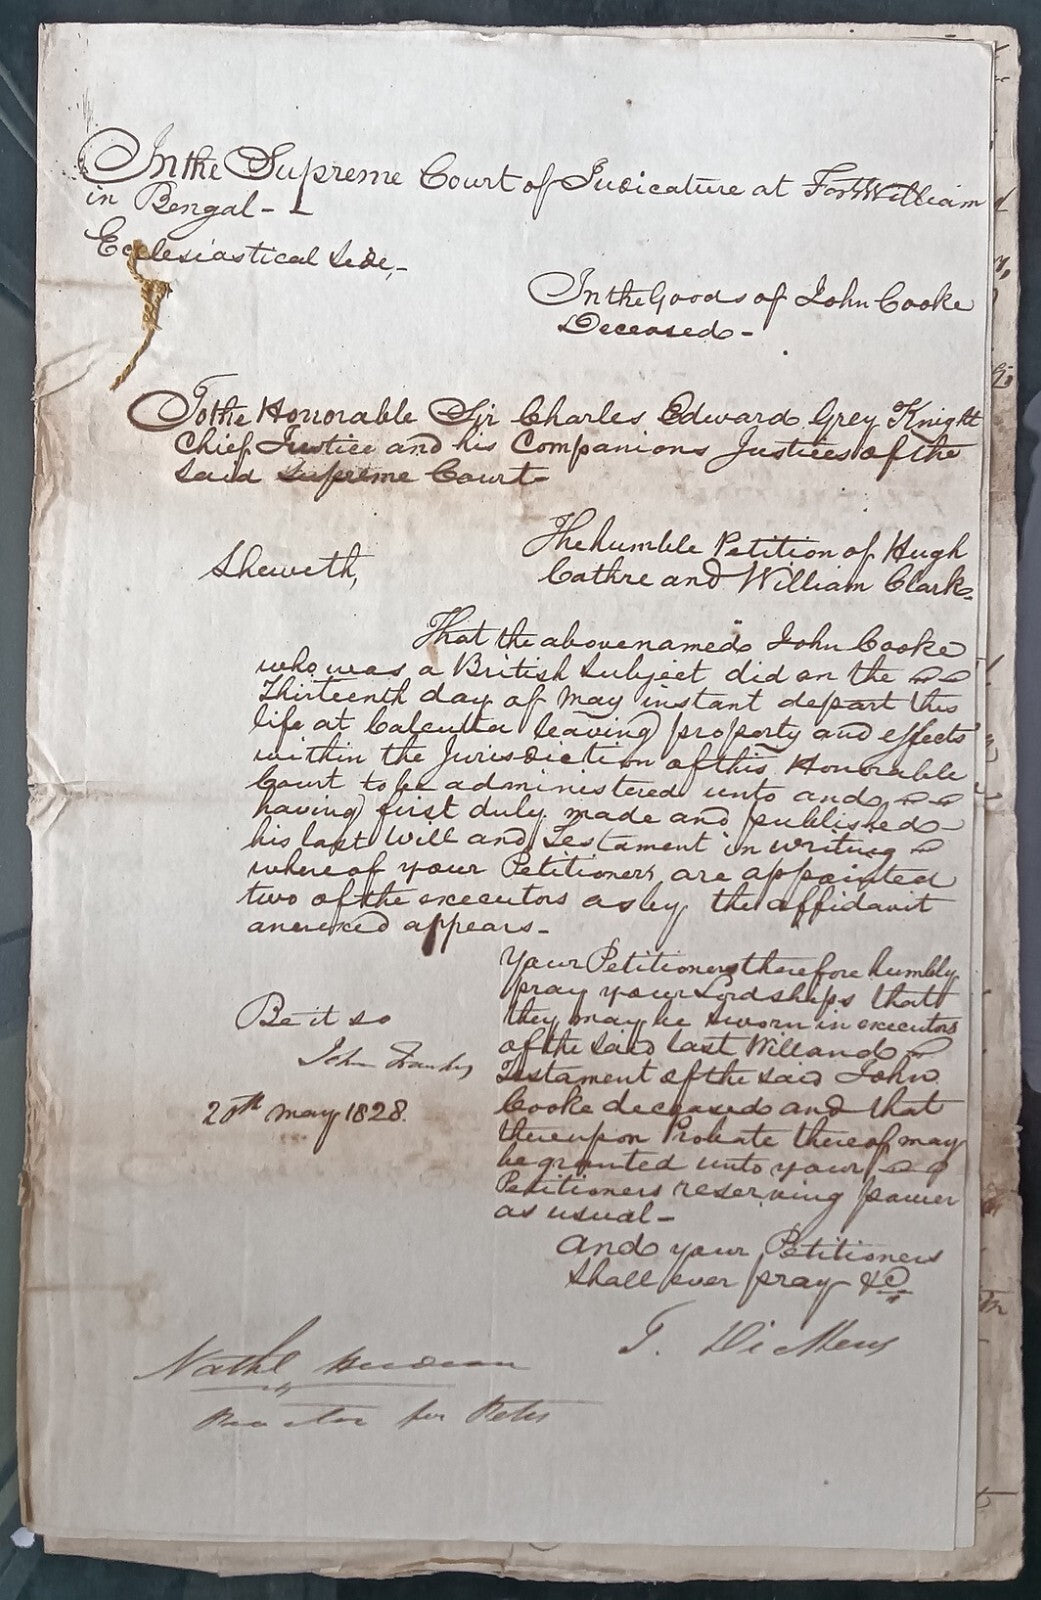 In the Supreme Court of Judicature at Fort William
in Bengal -
Ecclesiastical Side, -
In the Goods of John Cooke
Deceased -
To the Honorable Sir Charles Edward Grey Knight
Chief Justice and his Companions Justices of the
said Supreme Court -
The humble Petition of Hugh
Cathre and William Clark -
Sheweth,
That the abovenamed John Cooke
who was a British Subject did on the
Thirteenth day of May instant depart this
life at Calcutta leaving property and effects
within the Jurisdiction of this Honorable
Court to be administered unto and
having first duly made and published
his last Will and Testament in writing
whereof your Petitioners are appointed
two of the executors as by the affidavit
annexed appears -
Your Petitioners therefore humbly
pray your Lordships that
they may be sworn in executors
of the said last Will and
Testament of the said John
Cooke deceased and that
thereupon Probate thereof may
be granted unto your
Petitioners reserving power
as usual -
And your Petitioners
shall ever pray &c
Be it so
John
May 1828.
T. Dickens
Nathl Hudson
Proctor for Petrs